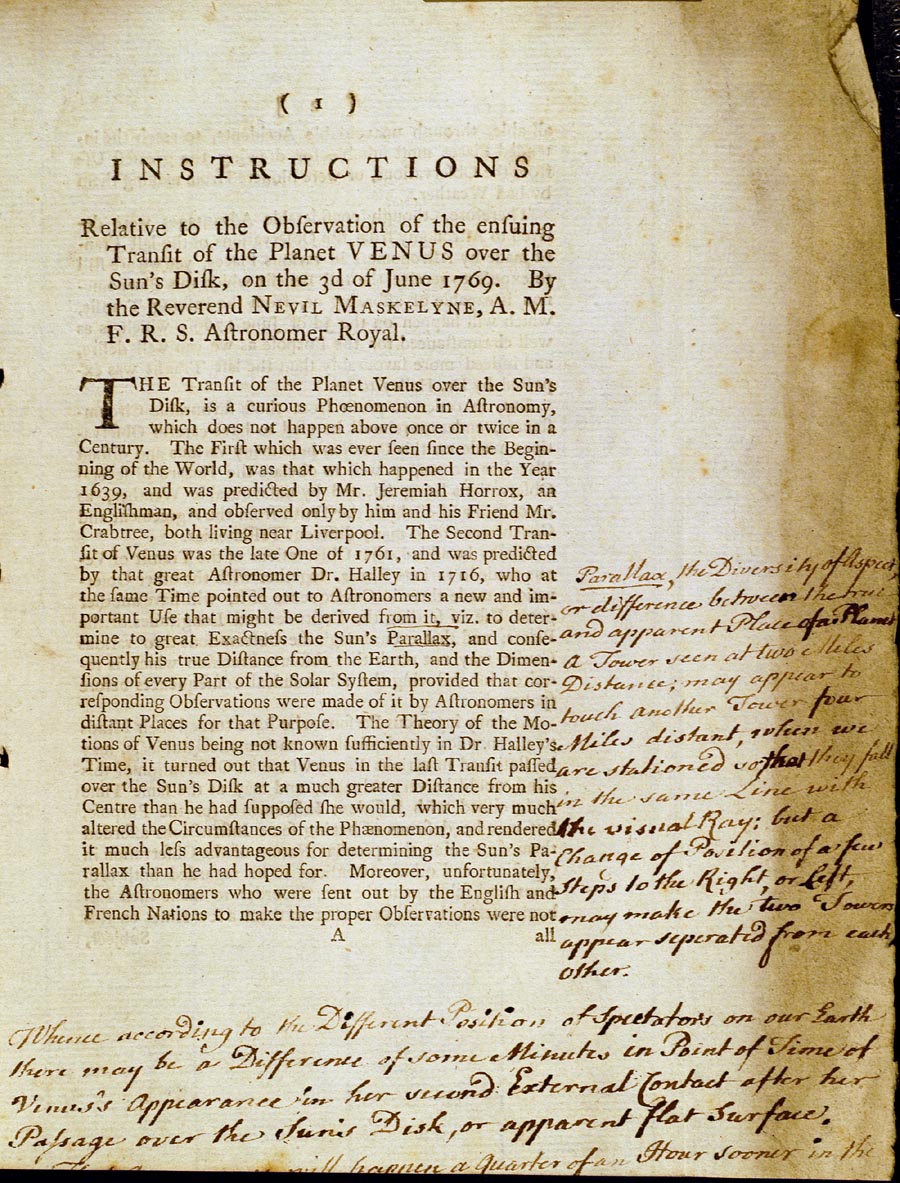 ( 1 )
INSTRUCTIONS
Relative to the Obſervation of the enſuing
Tranſit of the Planet VENUS over the
Sun's Diſk, on the 3d of June 1769. By
the Reverend NEVIL MASKELYNE, A. M.
F. R. S. Aſtronomer Royal.
THE Tranſit of the Planet Venus over the Sun's
Diſk, is a curious Phœnomenon in Aſtronomy,
which does not happen above once or twice in a
Century. The Firſt which was ever ſeen ſince the Begin-
ning of the World, was that which happened in the Year
1639, and was predicted by Mr. Jeremiah Horrox, an
Engliſhman, and obſerved only by him and his Friend Mr.
Crabtree, both living near Liverpool. The Second Tran-
ſit of Venus was the late One of 1761, and was predicted
by that great Aſtronomer Dr. Halley in 1716, who at
the ſame Time pointed out to Aſtronomers a new and im-
portant Uſe that might be derived from it, viz. to deter-
mine to great Exactneſs the Sun's Parallax, and conſe-
quently his true Diſtance from the Earth, and the Dimen-
ſions of every Part of the Solar Syſtem, provided that cor-
reſponding Obſervations were made of it by Aſtronomers in
diſtant Places for that Purpoſe. The Theory of the Mo-
tions of Venus being not known ſufficiently in Dr. Halley's
Time, it turned out that Venus in the laſt Tranſit paſſed
over the Sun's Diſk at a much greater Diſtance from his
Centre than he had ſuppoſed ſhe would, which very much
altered the Circumſtances of the Phænomenon, and rendered
it much leſs advantageous for determining the Sun's Pa-
rallax than he had hoped for. Moreover, unfortunately,
the Aſtronomers who were ſent out by the Engliſh and
French Nations to make the proper Obſervations were not
A all
Parallax, the Diversity of Aspect,
or difference between the true
and apparent Place of a Planet
A Tower seen at two Miles
Distance; may appear to
touch another Tower four
Miles distant, when we
are stationed so that they fall
in the same Line with
the visual Ray: but a
Change of Position of a few
steps to the Right, or Left,
may make the two Towers
appear seperated from each
other.
Whence according to the Different Position of Spectators on our Earth
there may be a Difference of some Minutes in Point of Time of
Venus's Appearance in her second External Contact after her
Paſsage over the Sun's Disk, or apparent flat Surface.
will happen a Quarter of an Hour sooner in the